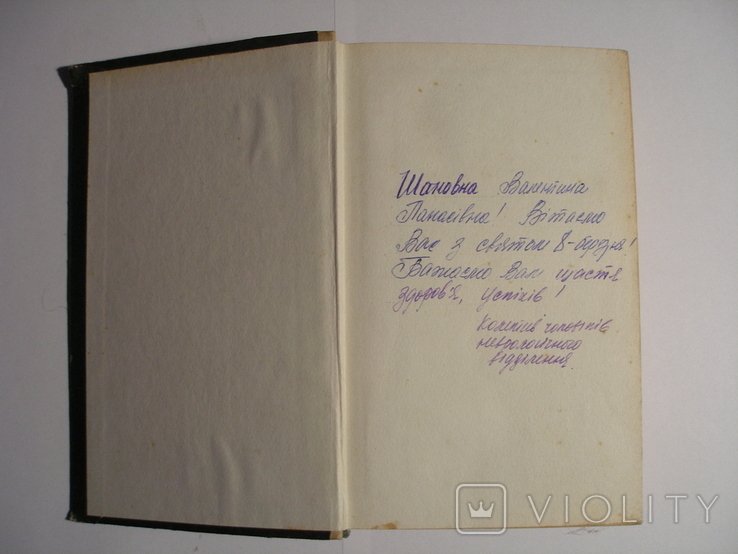 Шановна Валентина
Панасівна! Вітаємо
Вас з святом 8-березня!
Бажаємо Вам щастя
здоров'я, успіхів!
Колектив чоловіків
неврологічного
відділення.
VIOLITY